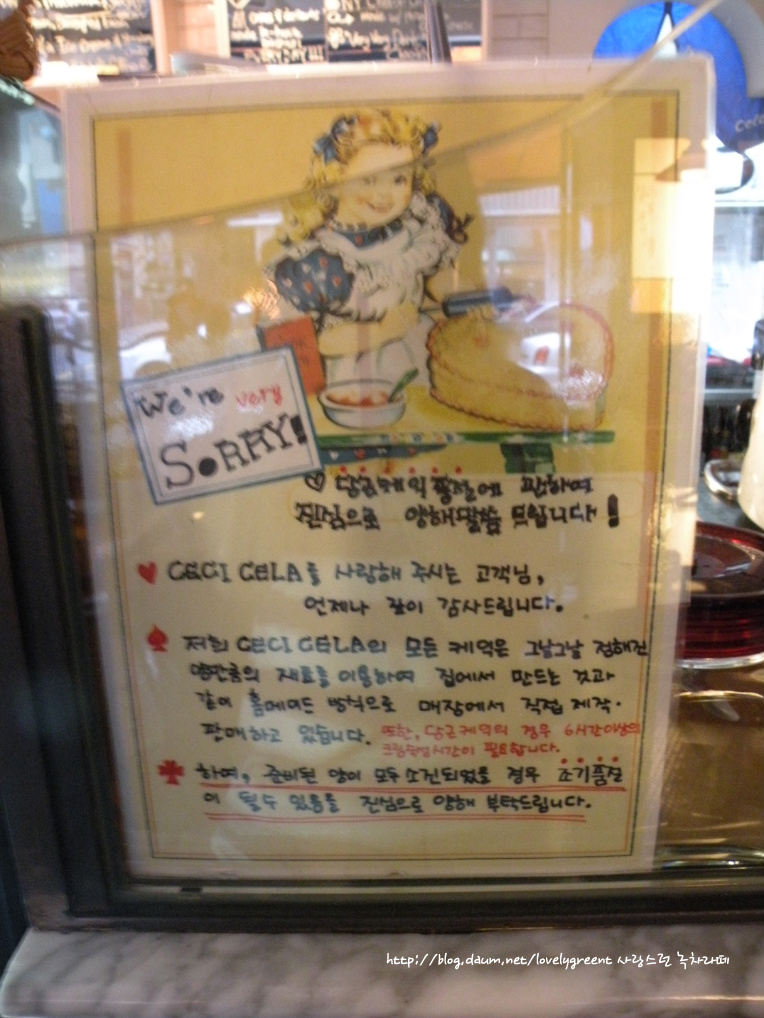 We're very
SORRY!
♡ 당근케익 품절에 관하여
진심으로 양해말씀 드립니다!
♥ CECI CELA를 사랑해 주시는 고객님,
언제나 깊이 감사드립니다.
♠ 저희 CECI CELA의 모든 케익은 그날그날 정해진
양만큼의 재료를 이용하여 집에서 만드는 것과
같이 홈메이드 방식으로 매장에서 직접 제작·
판매하고 있습니다. 또한, 당근케익의 경우 6시간이상의
크림숙성시간이 필요합니다.
♣ 하여, 준비된 양이 모두 소진되었을 경우 조기품절
이 될수 있음을 진심으로 양해 부탁드립니다.
http://blog.daum.net/lovelygreent 사랑스런 녹차라떼